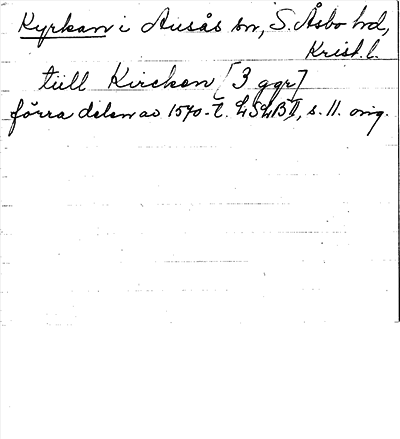 Kyrkan i Ausås sn, S. Åsbo hd,
Krist. l.
tüll Kircken [3 ggr]
förra delen av 1570-t. LSLB II, s. 11. orig.